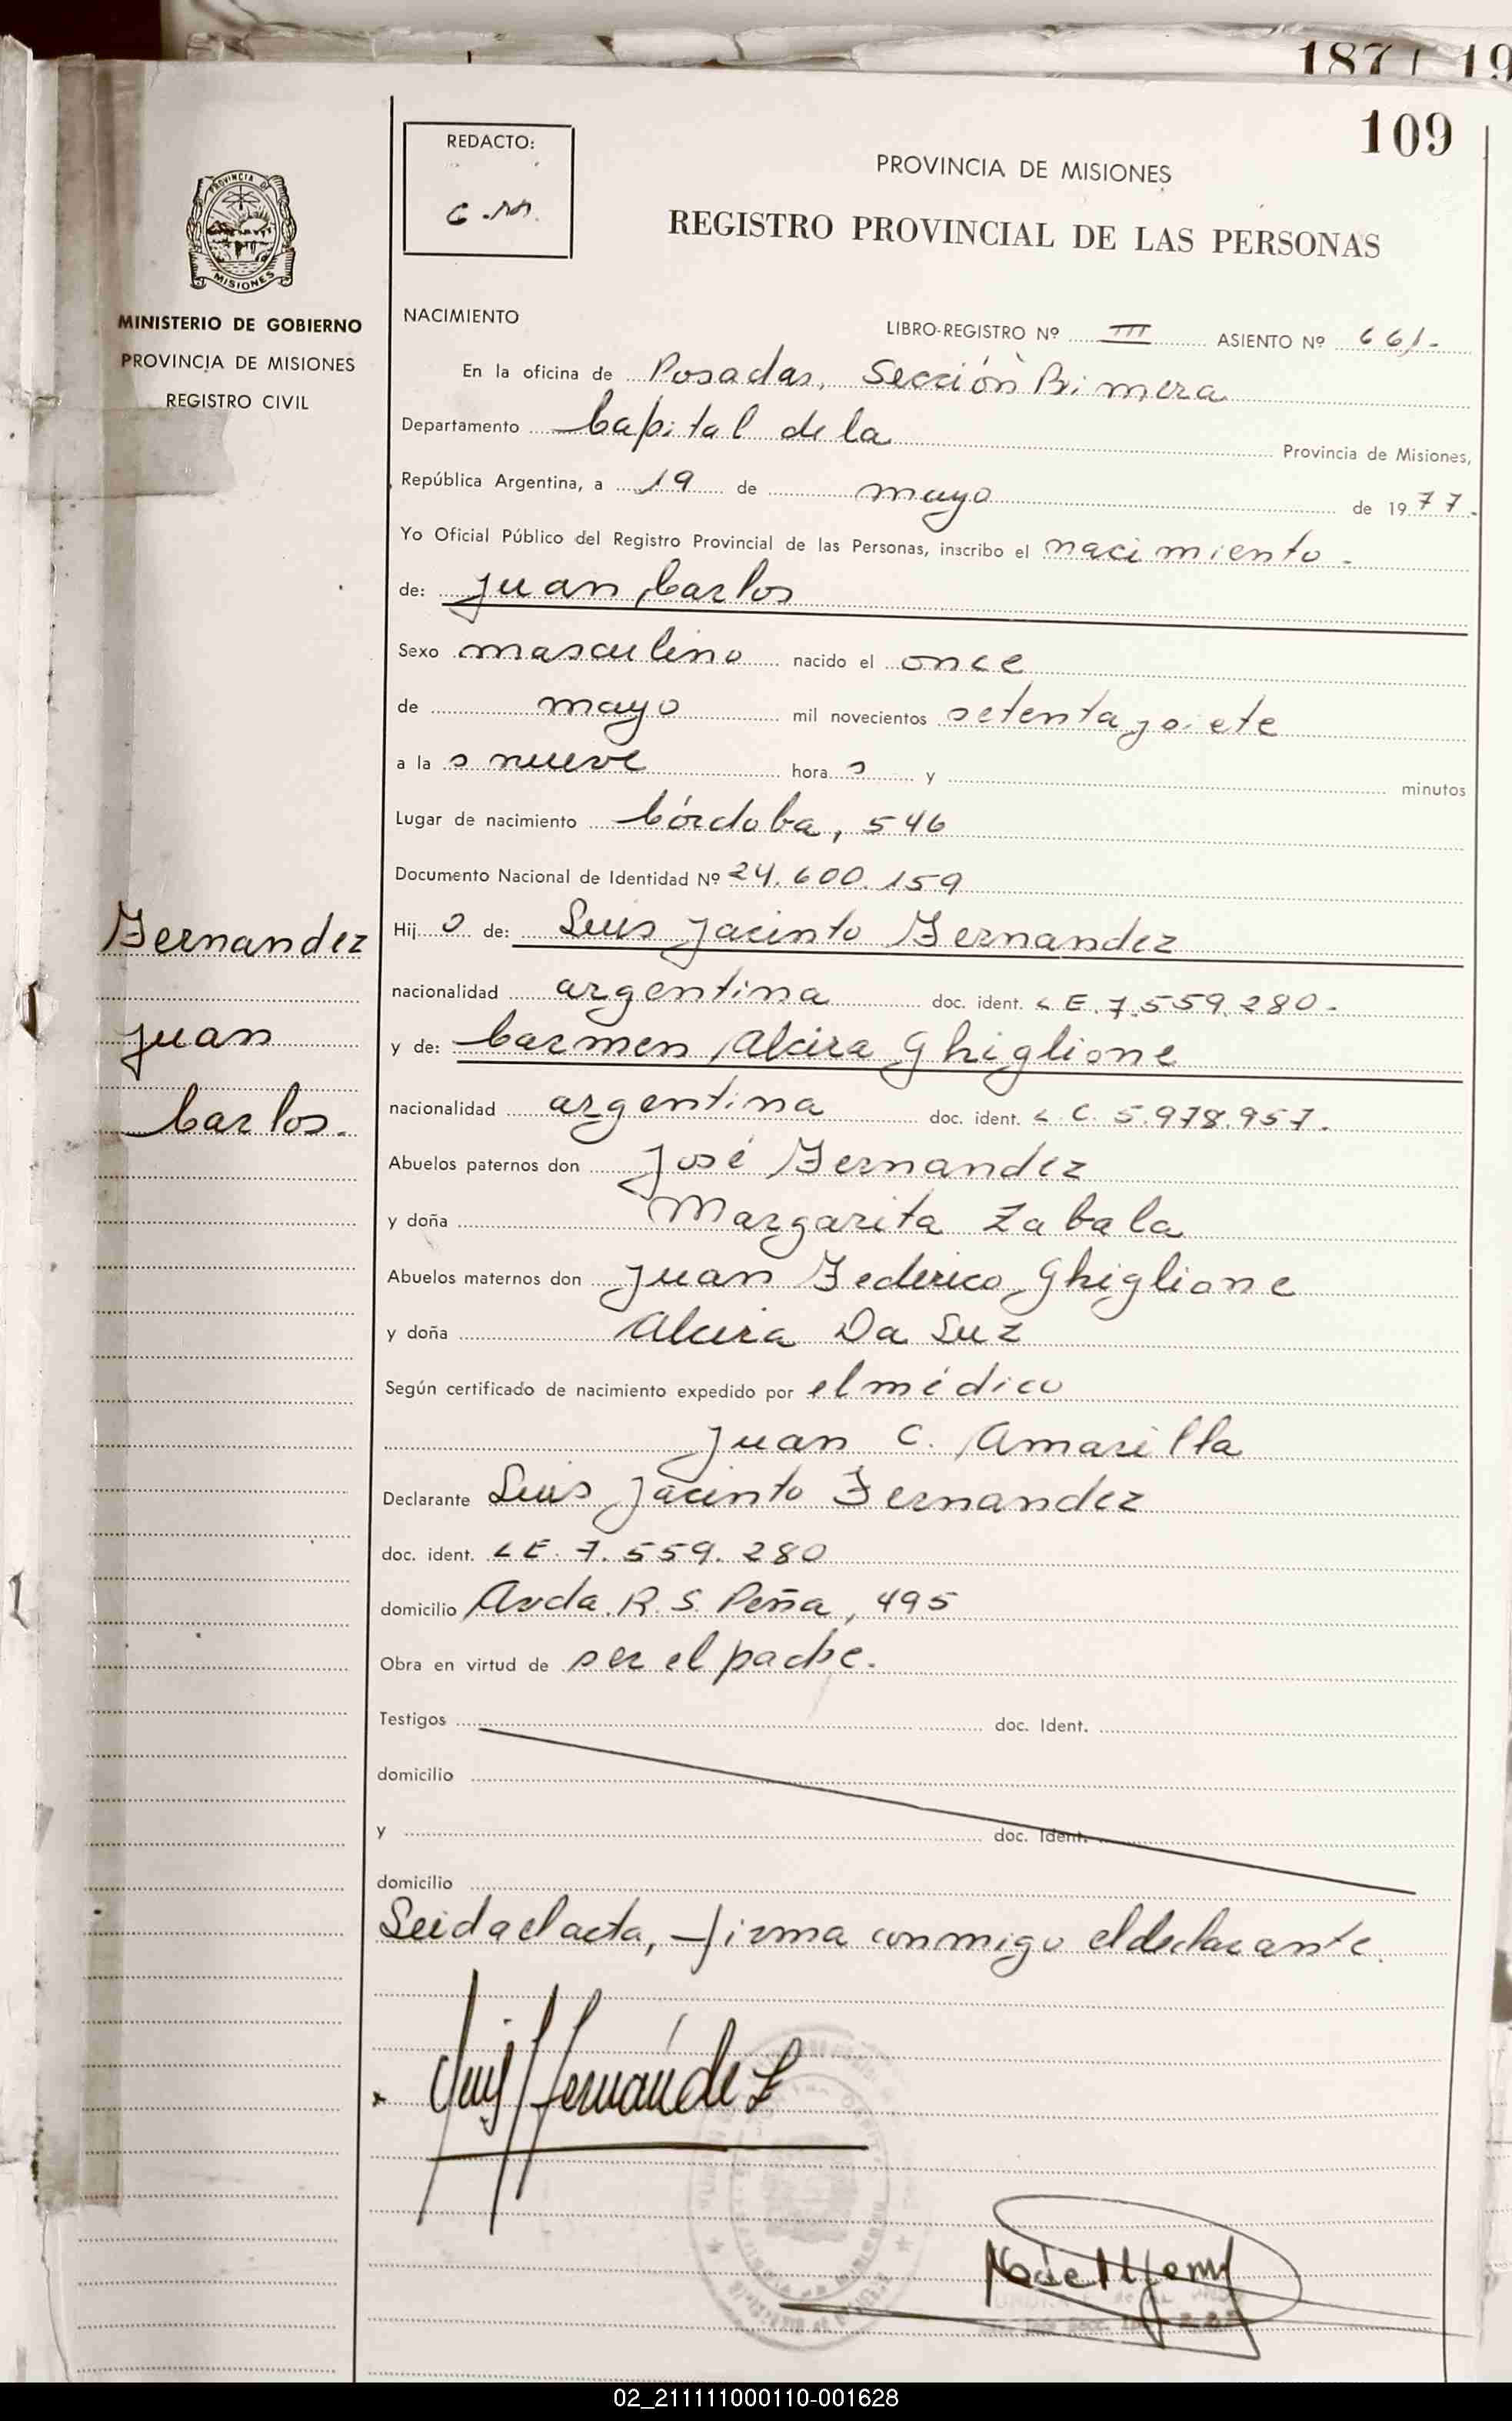 187 19
109
REDACTO:
C.M.
PROVINCIA DE MISIONES
REGISTRO PROVINCIAL DE LAS PERSONAS
PROVINCIA DE
MISIONES
MINISTERIO DE GOBIERNO
PROVINCIA DE MISIONES
REGISTRO CIVIL
NACIMIENTO
LIBRO-REGISTRO Nº III ASIENTO Nº 661.-
En la oficina de Posadas, Sección Primera
Departamento Capital de la Provincia de Misiones,
República Argentina, a 19 de mayo de 1977.
Yo Oficial Público del Registro Provincial de las Personas, inscribo el nacimiento.
de: Juan Carlos
Sexo masculino nacido el once
de mayo mil novecientos setenta y siete
a las nueve horas y minutos
Lugar de nacimiento Córdoba, 546
Documento Nacional de Identidad Nº 24.600.159
Fernandez
Juan
Carlos.
Hijo de: Luis Jacinto Fernandez
nacionalidad argentina doc. ident. L E. 7.559.280.-
y de: Carmen Alcira Ghiglione
nacionalidad argentina doc. ident. L C. 5.978.957.
Abuelos paternos don José Fernandez
y doña Margarita Zabala
Abuelos maternos don Juan Federico Ghiglione
y doña Alcira Da Luz
Según certificado de nacimiento expedido por el médico
Juan C. Amarilla
Declarante Luis Jacinto Fernandez
doc. ident. L E. 7.559.280
domicilio Avda. R. S. Peña, 495
Obra en virtud de ser el padre.
Testigos doc. Ident.
domicilio
y doc. Ident.
domicilio
Leida el acta, firma conmigo el declarante.
Luis Fernández
02_211111000110-001628